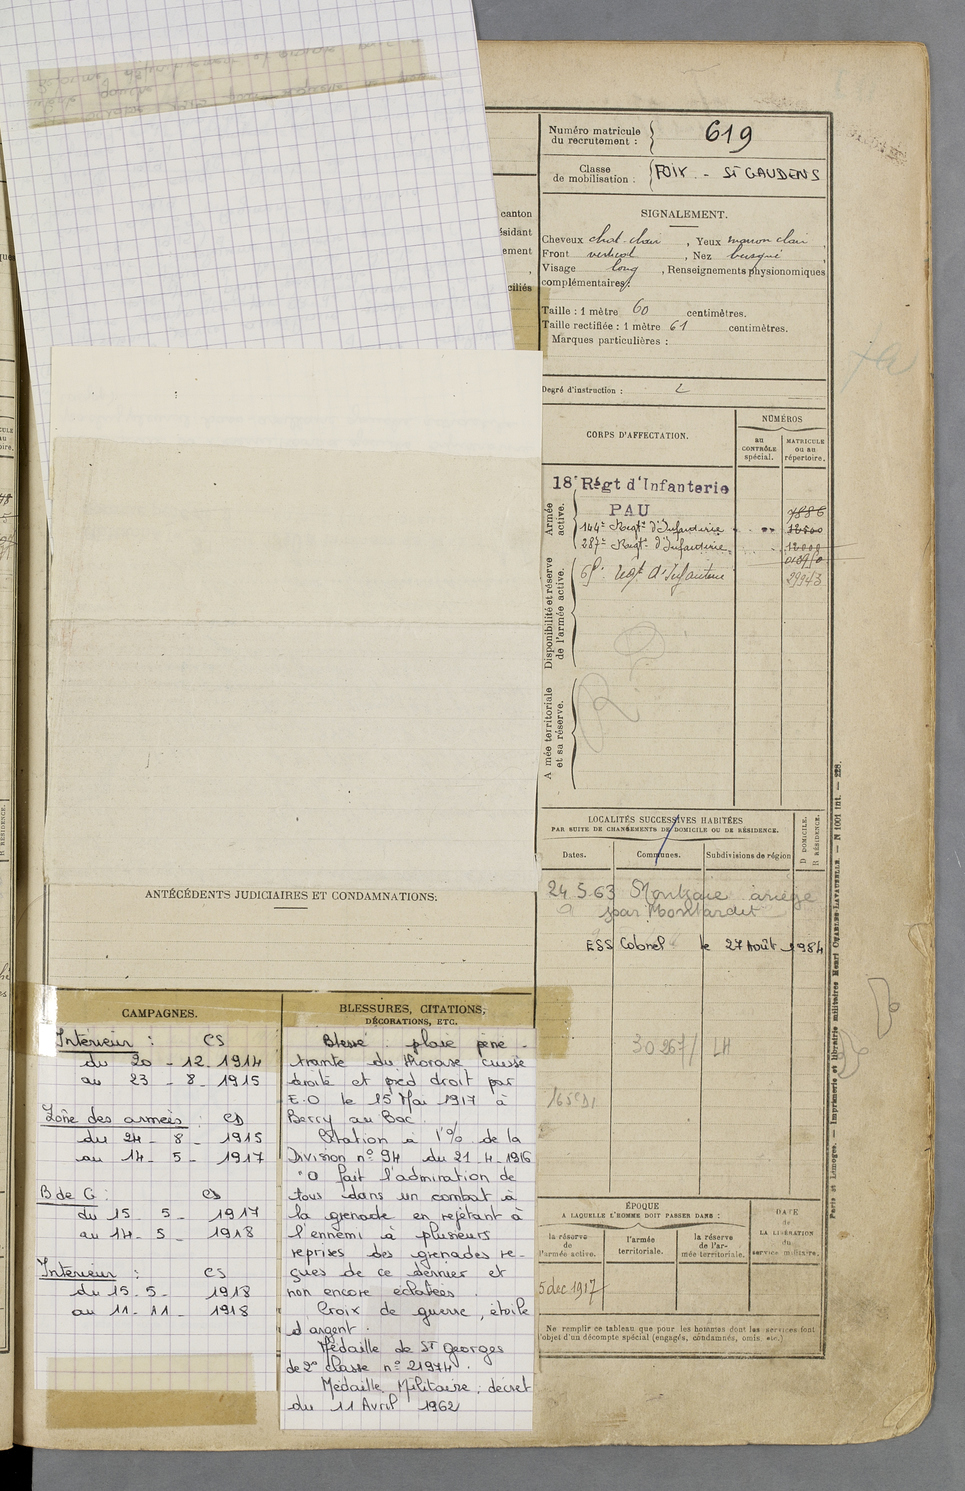 canton
ésidant
ement
ciliés
Numéro matricule
du recrutement :
619
Classe
de mobilisation :
FOIX - St GAUDENS
SIGNALEMENT.
Cheveux chat-clair, Yeux marron clair,
Front vertical, Nez busqué,
Visage long, Renseignements physionomiques
complémentaires:
Taille : 1 mètre 60 centimètres.
Taille rectifiée : 1 mètre 61 centimètres.
Marques particulières :
Degré d'instruction : 2
CORPS D'AFFECTATION.
NUMÉROS
au
CONTRÔLE
spécial.
MATRICULE
ou au
répertoire.
Armée
active.
18e Régt d'Infanterie
PAU
7886
144e Regt d'Infanterie
287e Regt d'Infanterie
12000
Disponibilité et réserve
de l'armée active.
Regt d'Infanterie
29943
A mée territoriale
et sa réserve.
LOCALITÉS SUCCESSIVES HABITÉES
PAR SUITE DE CHANGEMENTS DE DOMICILE OU DE RÉSIDENCE.
Dates.
Communes.
Subdivisions de région
D DOMICILE.
R RÉSIDENCE.
24.5.63 ariège
par Montardit
ESS Colonel le 27 Août 1984
30267/ LH
ANTÉCÉDENTS JUDICIAIRES ET CONDAMNATIONS.
CAMPAGNES.
Intérieur : CS
du 20 - 12 - 1914
au 23 - 8 - 1915
Zone des armées : CD
du 24 - 8 - 1915
au 14 - 5 - 1917
B de G : CD
du 15 5 - 1917
au 14 - 5 - 1918
Intérieur : CS
du 15 - 5 - 1918
au 11 - 11 - 1918
BLESSURES, CITATIONS,
DÉCORATIONS, ETC.
Blessé : plaie péné-
trante du thorax cuisse
droite et pied droit par
E.O le 15 Mai 1917 à
Berry au Bac.
Citation à l'% de la
Division n° 94 du 21-4-1916
"O fait l'admiration de
tous dans un combat à
la grenade en rejetant à
l'ennemi à plusieurs
reprises des grenades re-
çues de ce dernier et
non encore éclatées.
Croix de guerre, étoile
d'argent.
Médaille de St Georges
de 2e classe n° 21974.
Médaille Militaire, décret
du 11 Avril 1962
ÉPOQUE
A LAQUELLE L'HOMME DOIT PASSER DANS :
la réserve
de
l'armée active.
l'armée
territoriale.
la réserve
de l'ar-
mée territoriale.
DATE
de
LA LIBÉRATION
du
service militaire.
5 dec 1917
Ne remplir ce tableau que pour les hommes dont les services font
l'objet d'un décompte spécial (engagés, condamnés, omis, etc.)
Paris et Limoges. — Imprimerie et librairie militaires Henri CHARLES-LAVAUZELLE. — N 1001 int. — 228.